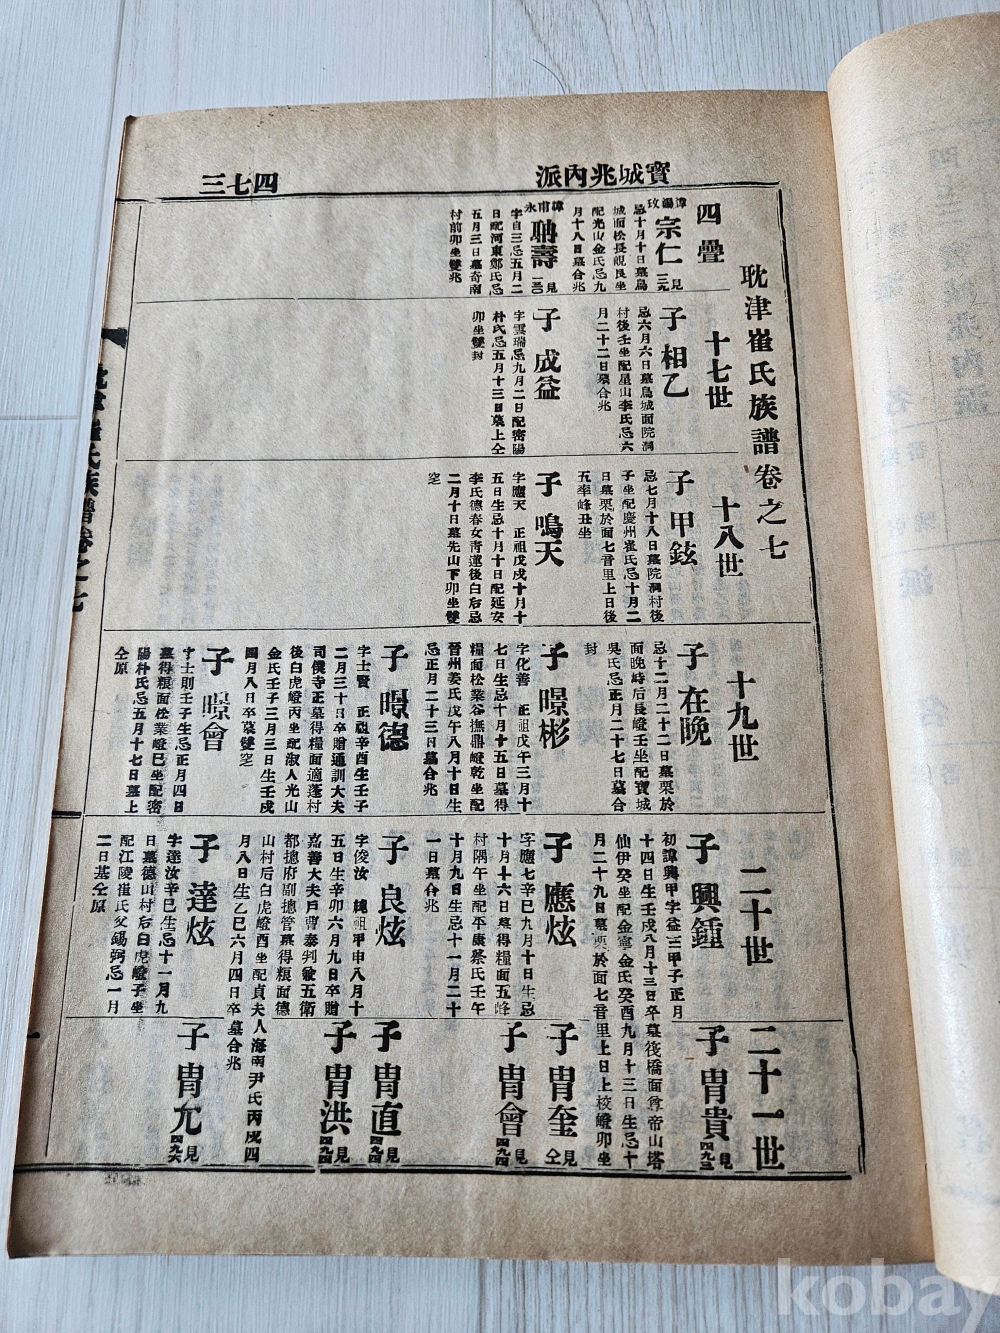 寳城兆內派
四七三
耽津崔氏族譜卷之七
四疊
諱湯玫
宗仁
見一三九
忌十月十日墓鳥
城面松長峴艮坐
配光山金氏忌九
月十八日墓合兆
諱甫永
聃壽
見一三〇
字自三忌五月二
日配河東鄭氏忌
五月三日墓奇南
村前卯坐雙兆
十七世
子 相乙
忌六月六日墓鳥城面院洞
村後壬坐配星山李氏忌六
月二十二日墓合兆
子 成益
字雲瑞忌九月二日配密陽
朴氏忌五月十三日墓上仝
卯坐雙封
十八世
子 甲鉉
忌七月十八日墓院洞村後
子坐配慶州崔氏忌十月二
日墓栗於面七音里上日後
五率峰丑坐
子 鳴天
字應天 正祖戊戌十月十
五日生忌十月十日配延安
李氏德春女靑蓮後白后忌
二月十日墓先山下卯坐雙
窆
十九世
子 在晩
忌十二月二十二日墓栗於
面晩時后長嶝壬坐配寳城
吳氏忌正月二十七日墓合
封
子 暻彬
字化善 正祖戊午三月十
七日生忌十月十五日墓得
糧面松業谷撫鼎嶝乾坐配
晉州姜氏戊午八月十日生
忌正月二十三日墓合兆
子 暻德
字士賢 正祖辛酉生壬子
二月三十日卒贈通訓大夫
司僕寺正墓得糧面適蓬村
後白虎嶝丙坐配淑人光山
金氏壬子三月三日生壬戌
四月八日卒墓雙窆
子 暻會
字士則壬子生忌正月四日
墓得粮面松業嶝巳坐配密
陽朴氏忌五月十七日墓上
仝原
二十世
子 興鍾
初諱興甲字益三甲子正月
十四日生壬戌八月十三日卒墓筏橋面尊帝山塔
仙伊癸坐配金寧金氏癸酉九月十三日生忌十
月二十九日墓栗於面七音里上日上校嶝卯坐
子 應炫
字應七辛巳九月十日生忌
十月十六日墓得糧面五峰
村隅午坐配平康蔡氏壬午
十月九日生忌十一月二十
一日墓合兆
子 良炫
字俊汝 純祖甲申八月十
五日生辛卯六月九日卒贈
嘉善大夫戶曹泰判兼五衛
都摠府副摠管墓得粮面德
山村后白虎嶝酉坐配貞夫人海南尹氏丙戌四
月八日生乙巳六月四日卒墓合兆
子 達炫
字達汝辛巳生忌十一月九
日墓德山村后白虎嶝子坐
配江陵崔氏父錫弼忌一月
二日基仝原
二十一世
子 冑貴
見四九三
子 冑奎
見仝
子 冑會
見四九四
子 冑直
見四九四
子 冑洪
見四九四
子 冑允
見四九六
kobay